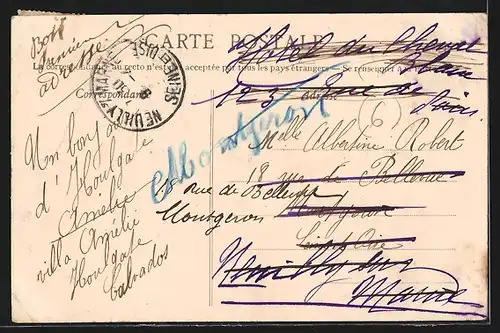 CARTE POSTALE
La correspondance au recto n'est pas acceptée par tous les pays étrangers. Se renseigner à la
Correspondance
Adresse
dernière
adresse
NEUILLY S MARNE
SEINE & OISE
Hôtel du Cheval
Blanc
123 Rue de
Paris
Montgeron
Melle Albertine Robert
18 rue de Bellevue
18 rue de Bellevue
Montgeron
Montgeron
Seine & Oise
Neuilly sur
Marne
Un bonjour
d'Houlgate
Amélie
villa Amélie
Houlgate
Calvados